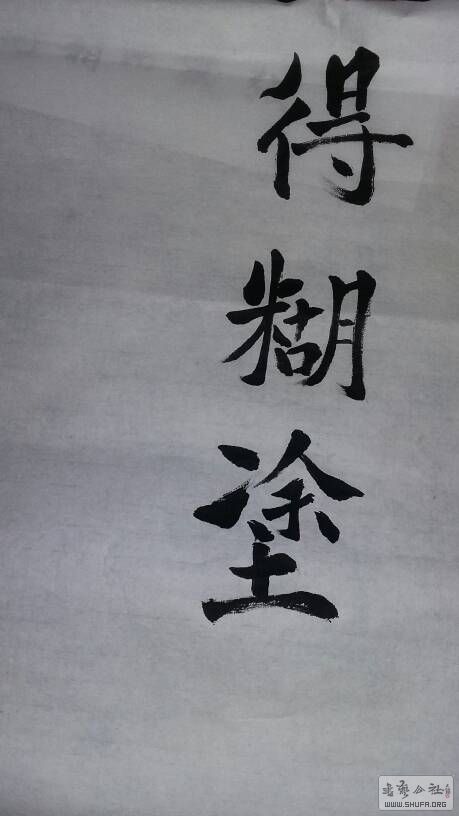 得糊塗
书艺公社
WWW.SHUFA.ORG